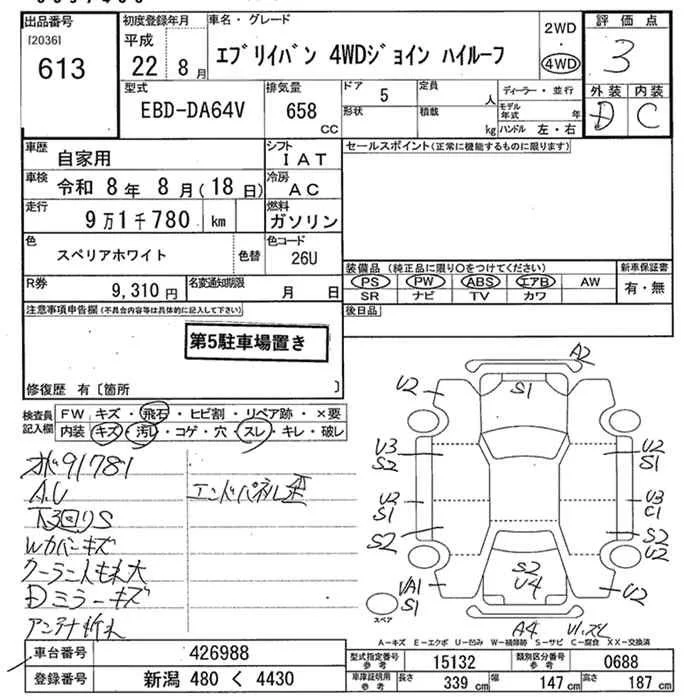 出品番号 初度登録年月 車名・グレード 2WD 評価点
[2036] 平成 ・ 3
613 22 年 8 月 エブリイバン 4WDジョイン ハイルーフ 4WD
型式 排気量 ドア 5 定員 人 ディーラー・並行 外装 内装
EBD-DA64V 658 CC 形状 積載 kg モデル年式 年 D C
ハンドル 左・右
車歴 自家用 シフト IAT セールスポイント(正常に機能するものに限ります)
車検 令和 8年 8月(18日) 冷房 AC
走行 9万1千780 km 燃料 ガソリン
色 スペリアホワイト 色替 色コード 26U
装備品 (純正品に限り○をつけてください) 新車保証書
R券 9,310円 名変通知期限 月 日 PS PW ABS エアB AW 有・無
SR ナビ TV カワ
注意事項申告欄(不具合内容等は具体的に記入して下さい) 後日品
第5駐車場置き
修復歴 有〔箇所 〕
検査員記入欄 FW キズ・飛石・ヒビ割・リペア跡・×要
内装 キズ・汚レ・コゲ・穴・スレ・キレ・破レ
91781
A.U エンドパネル
下3回りS
Wカバーキズ
Dミラーキズ
アンテナ折れ
A2
U2 S1 U2
U3 S2 U2 S1
U2 S1 U3 C1
S2 S2 U2
S2 U4
S1 U2
スペア A4
A-キズ E-エクボ U-凹み W-補修跡 S-サビ C-腐食 XX-交換済
車台番号 426988 型式指定番号 参考 15132 類別区分番号 参考 0688
登録番号 新潟 480 く 4430 車庫証明用 参考 長さ 339 cm 幅 147 cm 高さ 187 cm